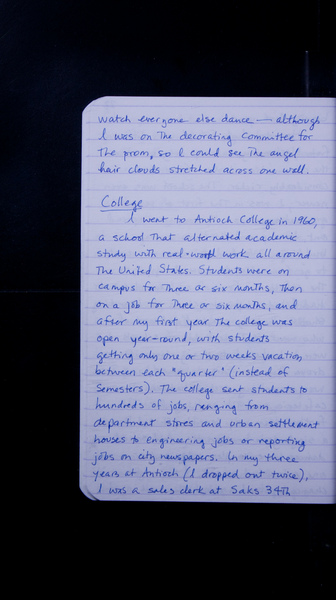 watch everyone else dance — although
I was on The decorating Committee for
The prom, so I could see The angel
hair clouds stretched across one wall.
College
I went to Antioch College in 1960,
a school That alternated academic
study with real-world work all around
The United States. Students were on
campus for Three or six months, Then
on a job for Three or six months, and
after my first year The college was
open year-round, with students
getting only one or two weeks vacation
between each "quarter" (instead of
Semesters). The college sent students to
hundreds of jobs, ranging from
department stores and urban settlement
houses to engineering jobs or reporting
jobs on city newspapers. In my three
years at Antioch (I dropped out twice),
I was a sales clerk at Saks 34th